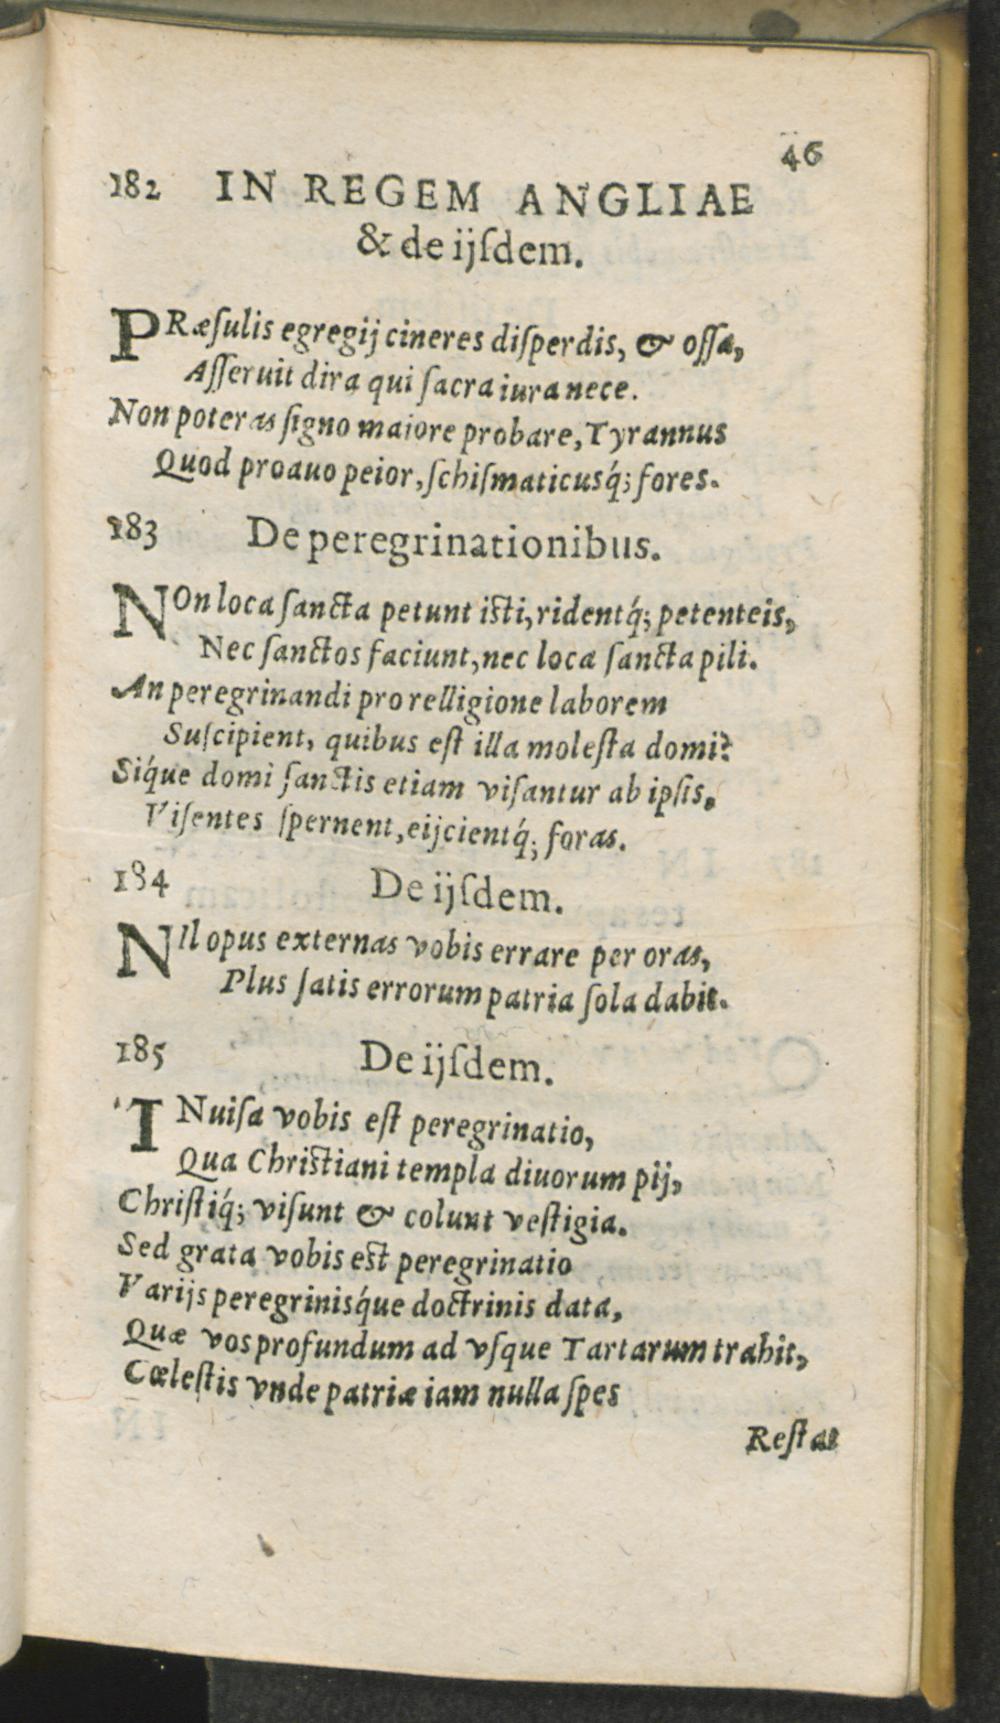 46
182 IN REGEM ANGLIAE
& de ijſdem.
PRæſulis egregij cineres diſperdis, & oſſa,
Aſſeruit dira qui ſacra iura nece.
Non poteras ſigno maiore probare, Tyrannus
Quod proauo peior, ſchiſmaticusq́; fores.
183 De peregrinationibus.
NOn loca ſancta petunt iſti, ridentq́; petenteis,
Nec ſanctos faciunt, nec loca ſancta pili.
An peregrinandi pro relligione laborem
Suſcipient, quibus eſt illa moleſta domi?
Siq́ue domi ſanctis etiam viſantur ab ipſis,
Viſentes ſpernent, eijcientq́; foras.
184 De ijſdem.
NIl opus externas vobis errare per oras,
Plus ſatis errorum patria ſola dabit.
185 De ijſdem.
INuiſa vobis eſt peregrinatio,
Qua Chriſtiani templa diuorum pij,
Chriſtiq́; viſunt & colunt veſtigia.
Sed grata vobis eſt peregrinatio
Varijs peregrinisq́ue doctrinis data,
Quæ vos profundum ad vſque Tartarum trahit,
Cœleſtis vnde patriæ iam nulla ſpes
Reſtat